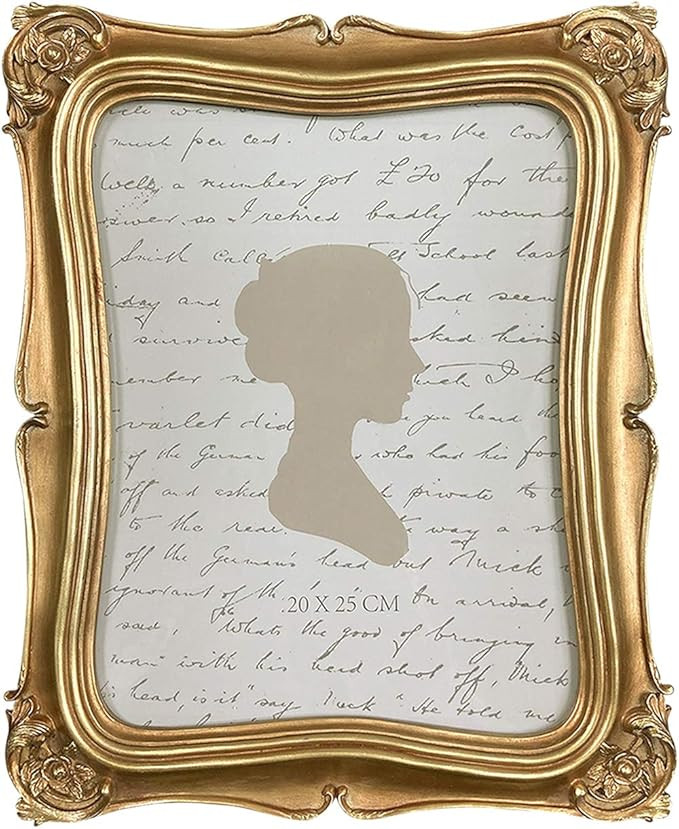 much per cent. What was the cost
Well, a number got £70 for the
so I retired badly wound
Smith call School last
day and had seen
I surviv sked him
ember me which I ho
varlet did you heard the
of the German who had his foo
off and asked private to
to the rear. way a sh
off the German's head out Mick
ignorant of the On arrival,
20 X 25 CM
said, "Whats the good of bringing in
man" with his head shot off, Mick
is head, is it" say Mick." He told me